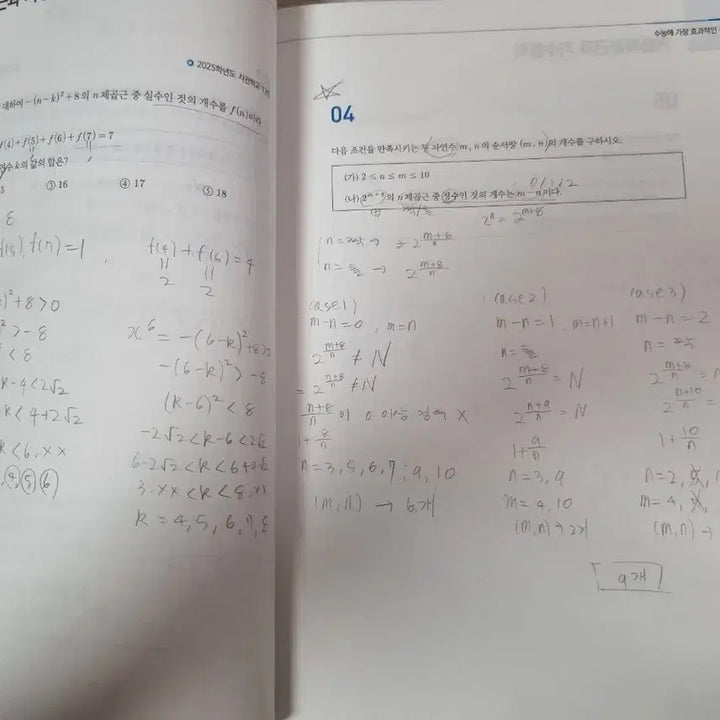 2025학년도 사관학교
대하여 -(n-k)²+8의 n제곱근 중 실수인 것의 개수를 f(n)이라
f(4)+f(5)+f(6)+f(7)=7
k의 값의 합은?
5 ③ 16 ④ 17 ⑤ 18
f(n)=1
)²+8>0
²>-8
²<8
k-4<2√2
k<4+2√2
k<6.××
4, 5, 6
f(4)+f(6)=4
2 2
x⁶=-(6-k)²+8>0
-(6-k)²>-8
(k-6)²<8
-2√2<k-6<2√2
6-2√2<k<6+2√2
3.××<k<8.××
k=4, 5, 6, 7, 8
수능에 가장 효과적인
04
다음 조건을 만족시키는 두 자연수 m, n의 순서쌍 (m, n)의 개수를 구하시오.
(가) 2≤n≤m≤10
(나) 2^(m+8)의 n제곱근 중 실수인 것의 개수는 m-n이다.
0/1/2
2ⁿ=2^(m+8)
n=짝 → ±2^((m+8)/n)
n=홀 → 2^((m+8)/n)
case1)
m-n=0, m=n
2^((m+8)/n) ≠ N
= 2^((n+8)/n) ≠ N
(n+8)/n 이 0 이상 정수 X
1+8/n
n=3, 5, 6, 7, 9, 10
(m, n) → 6개
case2)
m-n=1, m=n+1
n=홀
2^((m+8)/n) = N
2^((n+9)/n) = N
1+9/n
n=3, 9
m=4, 10
(m, n) → 2개
case3)
m-n=2
n=짝
2^((m+8)/n) =
2^((n+10)/n) =
1+10/n
n=2,
m=4,
(m, n) →
9개